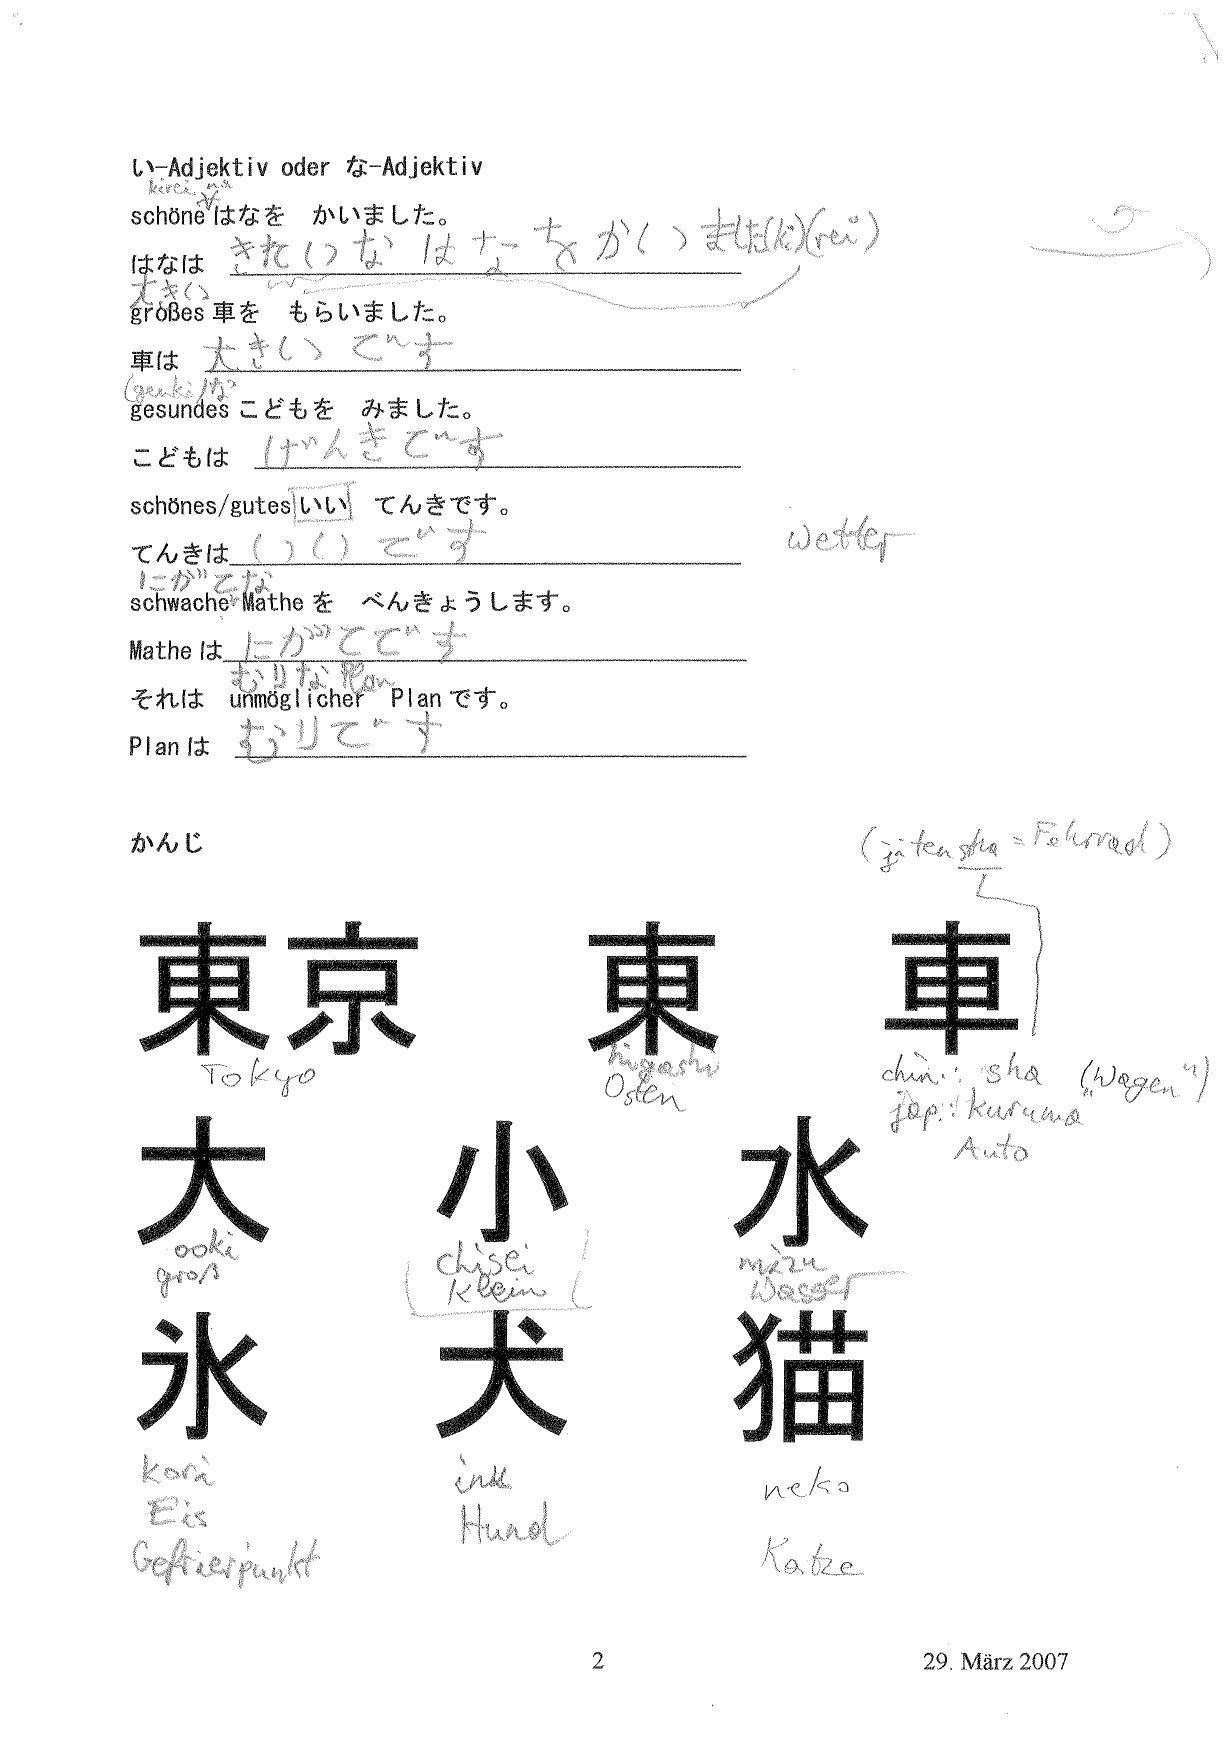 い-Adjektiv oder な-Adjektiv
kirei na
schöne はなを かいました。
はなは きれいな はなを かいました(ki)(rei)
大きい
großes 車を もらいました。
車は 大きい です
(genki)な
gesundes こどもを みました。
こどもは げんきです
schönes/gutes いい てんきです。
てんきは いい です
wetter
にがてな
schwache Mathe を べんきょうします。
Mathe は にがてです
むりな Plan
それは unmöglicher Plan です。
Plan は むりです
かんじ
(jitensha = Fahrrad)
東京 東 車
Tokyo
higashi
Osten
chin.: sha („Wagen“)
jap.: kuruma
Auto
大 小 水
ooki
groß
chisei
klein
mizu
Wasser
氷 犬 猫
kori
Eis
Gefrierpunkt
inu
Hund
neko
Katze
2 29. März 2007